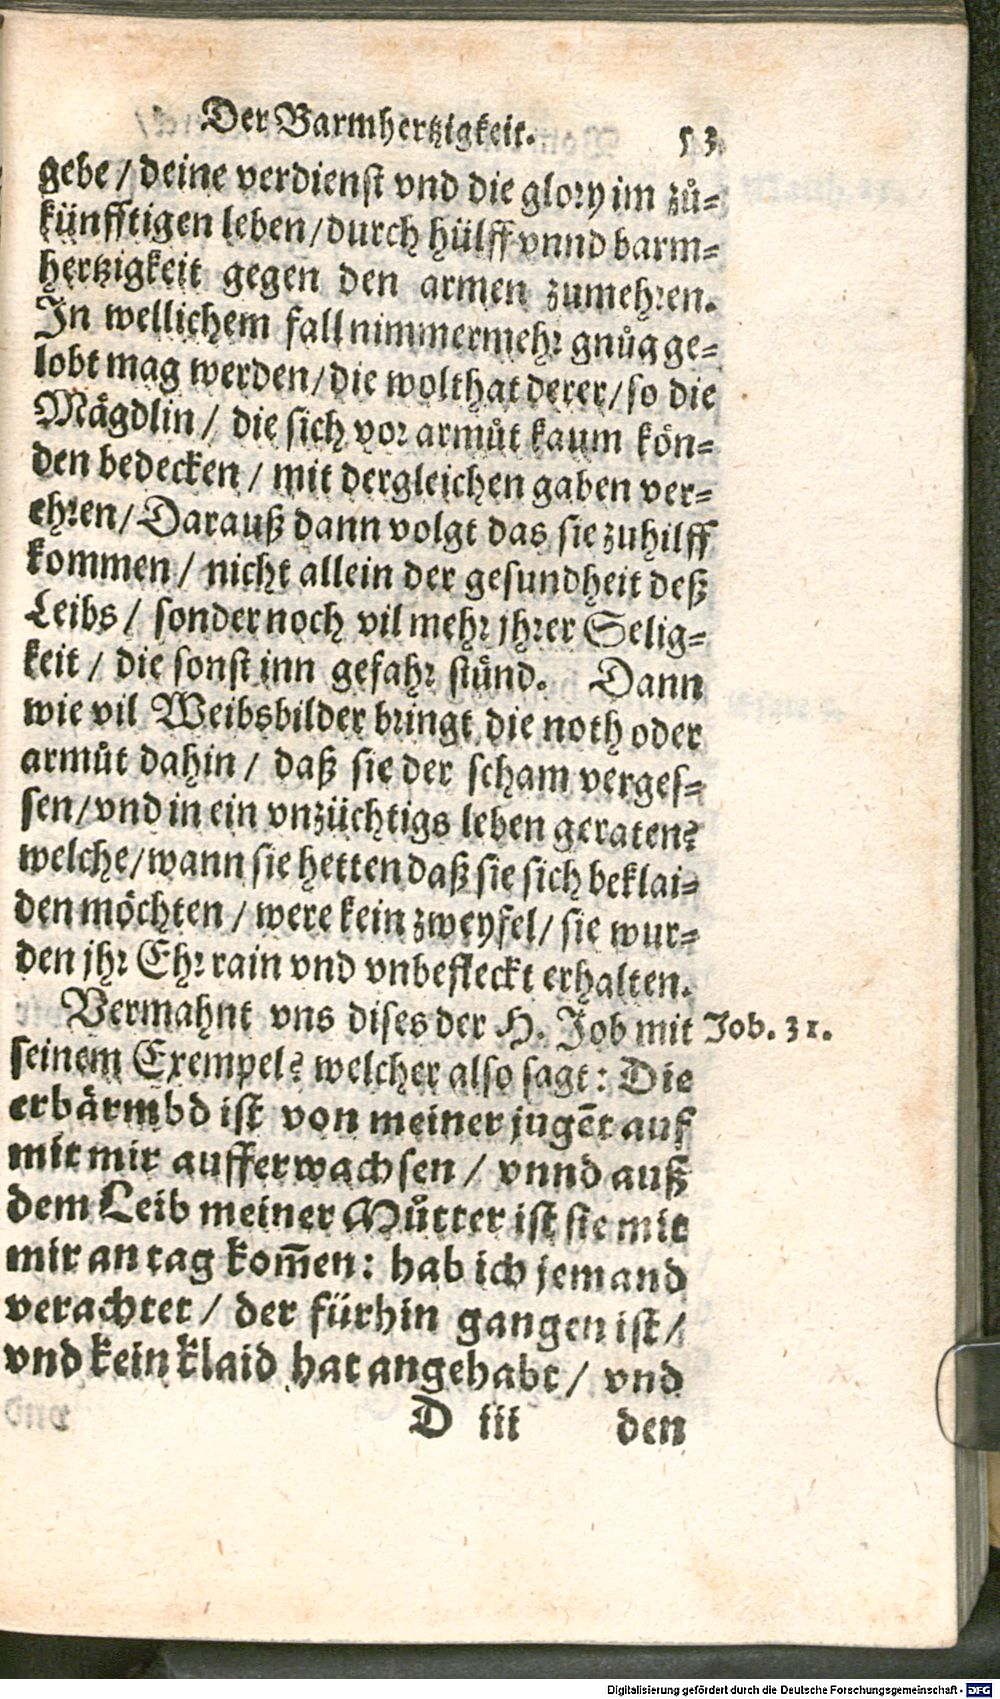 Der Barmhertzigkeit. 53.
gebe / deine verdienst vnd die glory im zů-
künfftigen leben / durch hülff vnnd barm-
hertzigkeit gegen den armen zumehren.
In wellichem fall nimmermehr gnůg ge-
lobt mag werden / die wolthat derer / so die
Mägdlin / die sich vor armůt kaum kön-
den bedecken / mit dergleichen gaben ver-
ehren / Darauß dann volgt das sie zuhilff
kommen / nicht allein der gesundheit deß
Leibs / sonder noch vil mehr jhrer Selig-
keit / die sonst inn gefahr stünd. Dann
wie vil Weibsbilder bringt die noth oder
armůt dahin / daß sie der scham verges-
sen / vnd in ein vnzüchtigs leben geraten?
welche / wann sie hetten daß sie sich beklai-
den möchten / were kein zweyfel / sie wur-
den jhr Ehr rain vnd vnbefleckt erhalten.
Vermahnt vns dises der H. Job mit Job. 31.
seinem Exempel? welcher also sagt: Die
erbärmbd ist von meiner jugēt auf
mit mir aufferwachsen / vnnd auß
dem Leib meiner Můtter ist sie mit
mir an tag kom̄en: hab ich jemand
verachtet / der fürhin gangen ist /
vnd kein klaid hat angehabt / vnd
D iii den
Digitalisierung gefördert durch die Deutsche Forschungsgemeinschaft - DFG